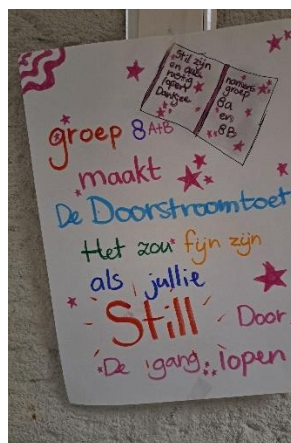 Stil zijn
en
rustig
lopen
Dankjee
namens
groep
8a
en
8B
groep 8 A+B
maakt
De Doorstroomtoet
Het zou fijn zijn
als jullie
Still Door
De gang lopen